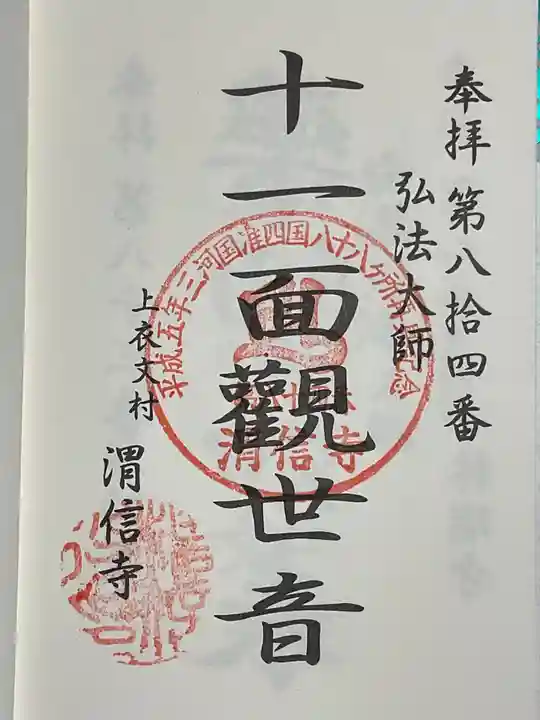 奉拝 第八拾四番
弘法大師
十一面觀世音
平成五年三河国准四国八十八ヶ所
渭信寺
上衣文村
渭信寺